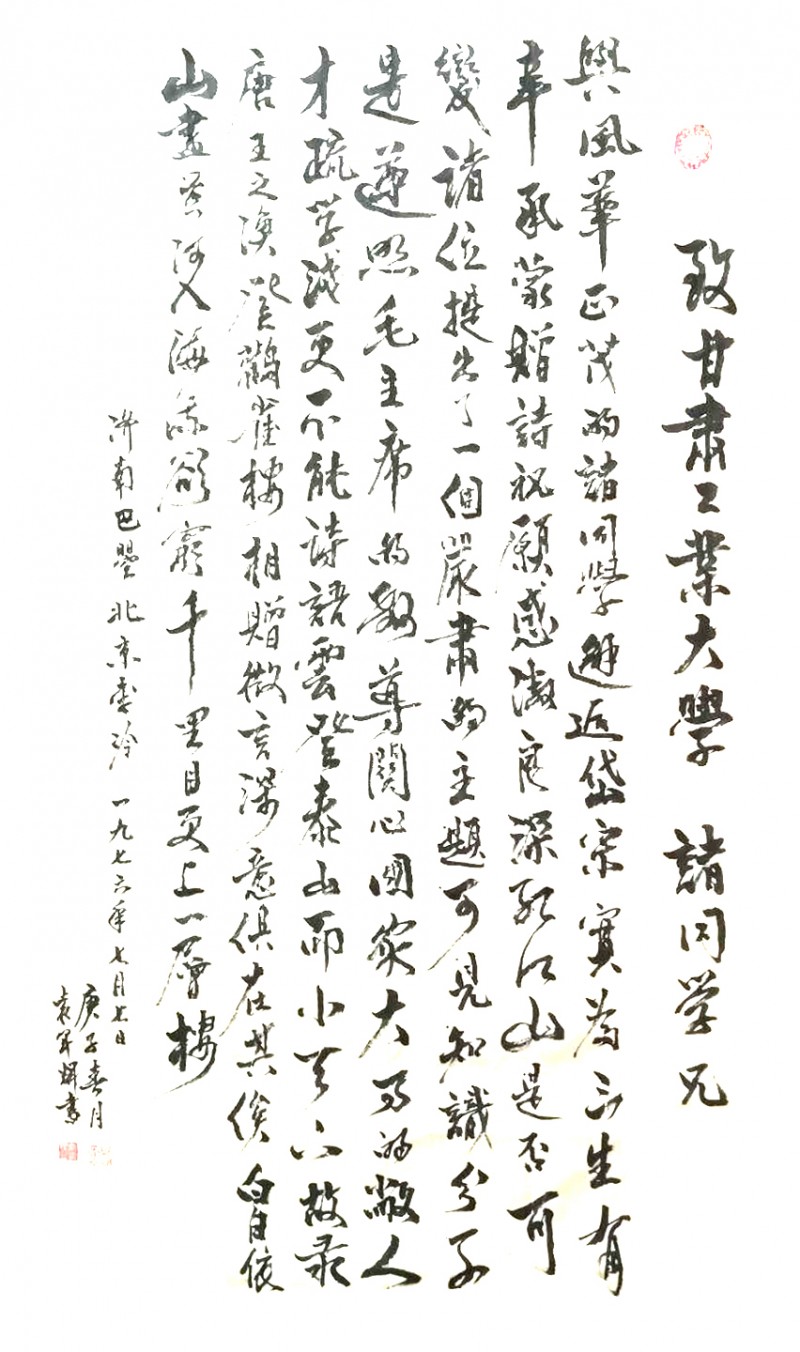 致甘肅工業大學 諸同学兄
與風華正茂的諸同學邂逅岱宗實為三生有
幸承蒙贈詩祝願感激良深 江山是否可
變諸位提出了一個嚴肅的主題可見知識分子
是遵照毛主席的教導關心國家大事的敝人
才疏学浅更不能詩語雲登泰山而小天下故录
唐王之渙登鸛雀樓相贈微言深意俱在其俟白日依
山盡黄河入海流欲窮千里目更上一層樓
济南 北京 一九七六年七月七日
庚子春月
袁军 書